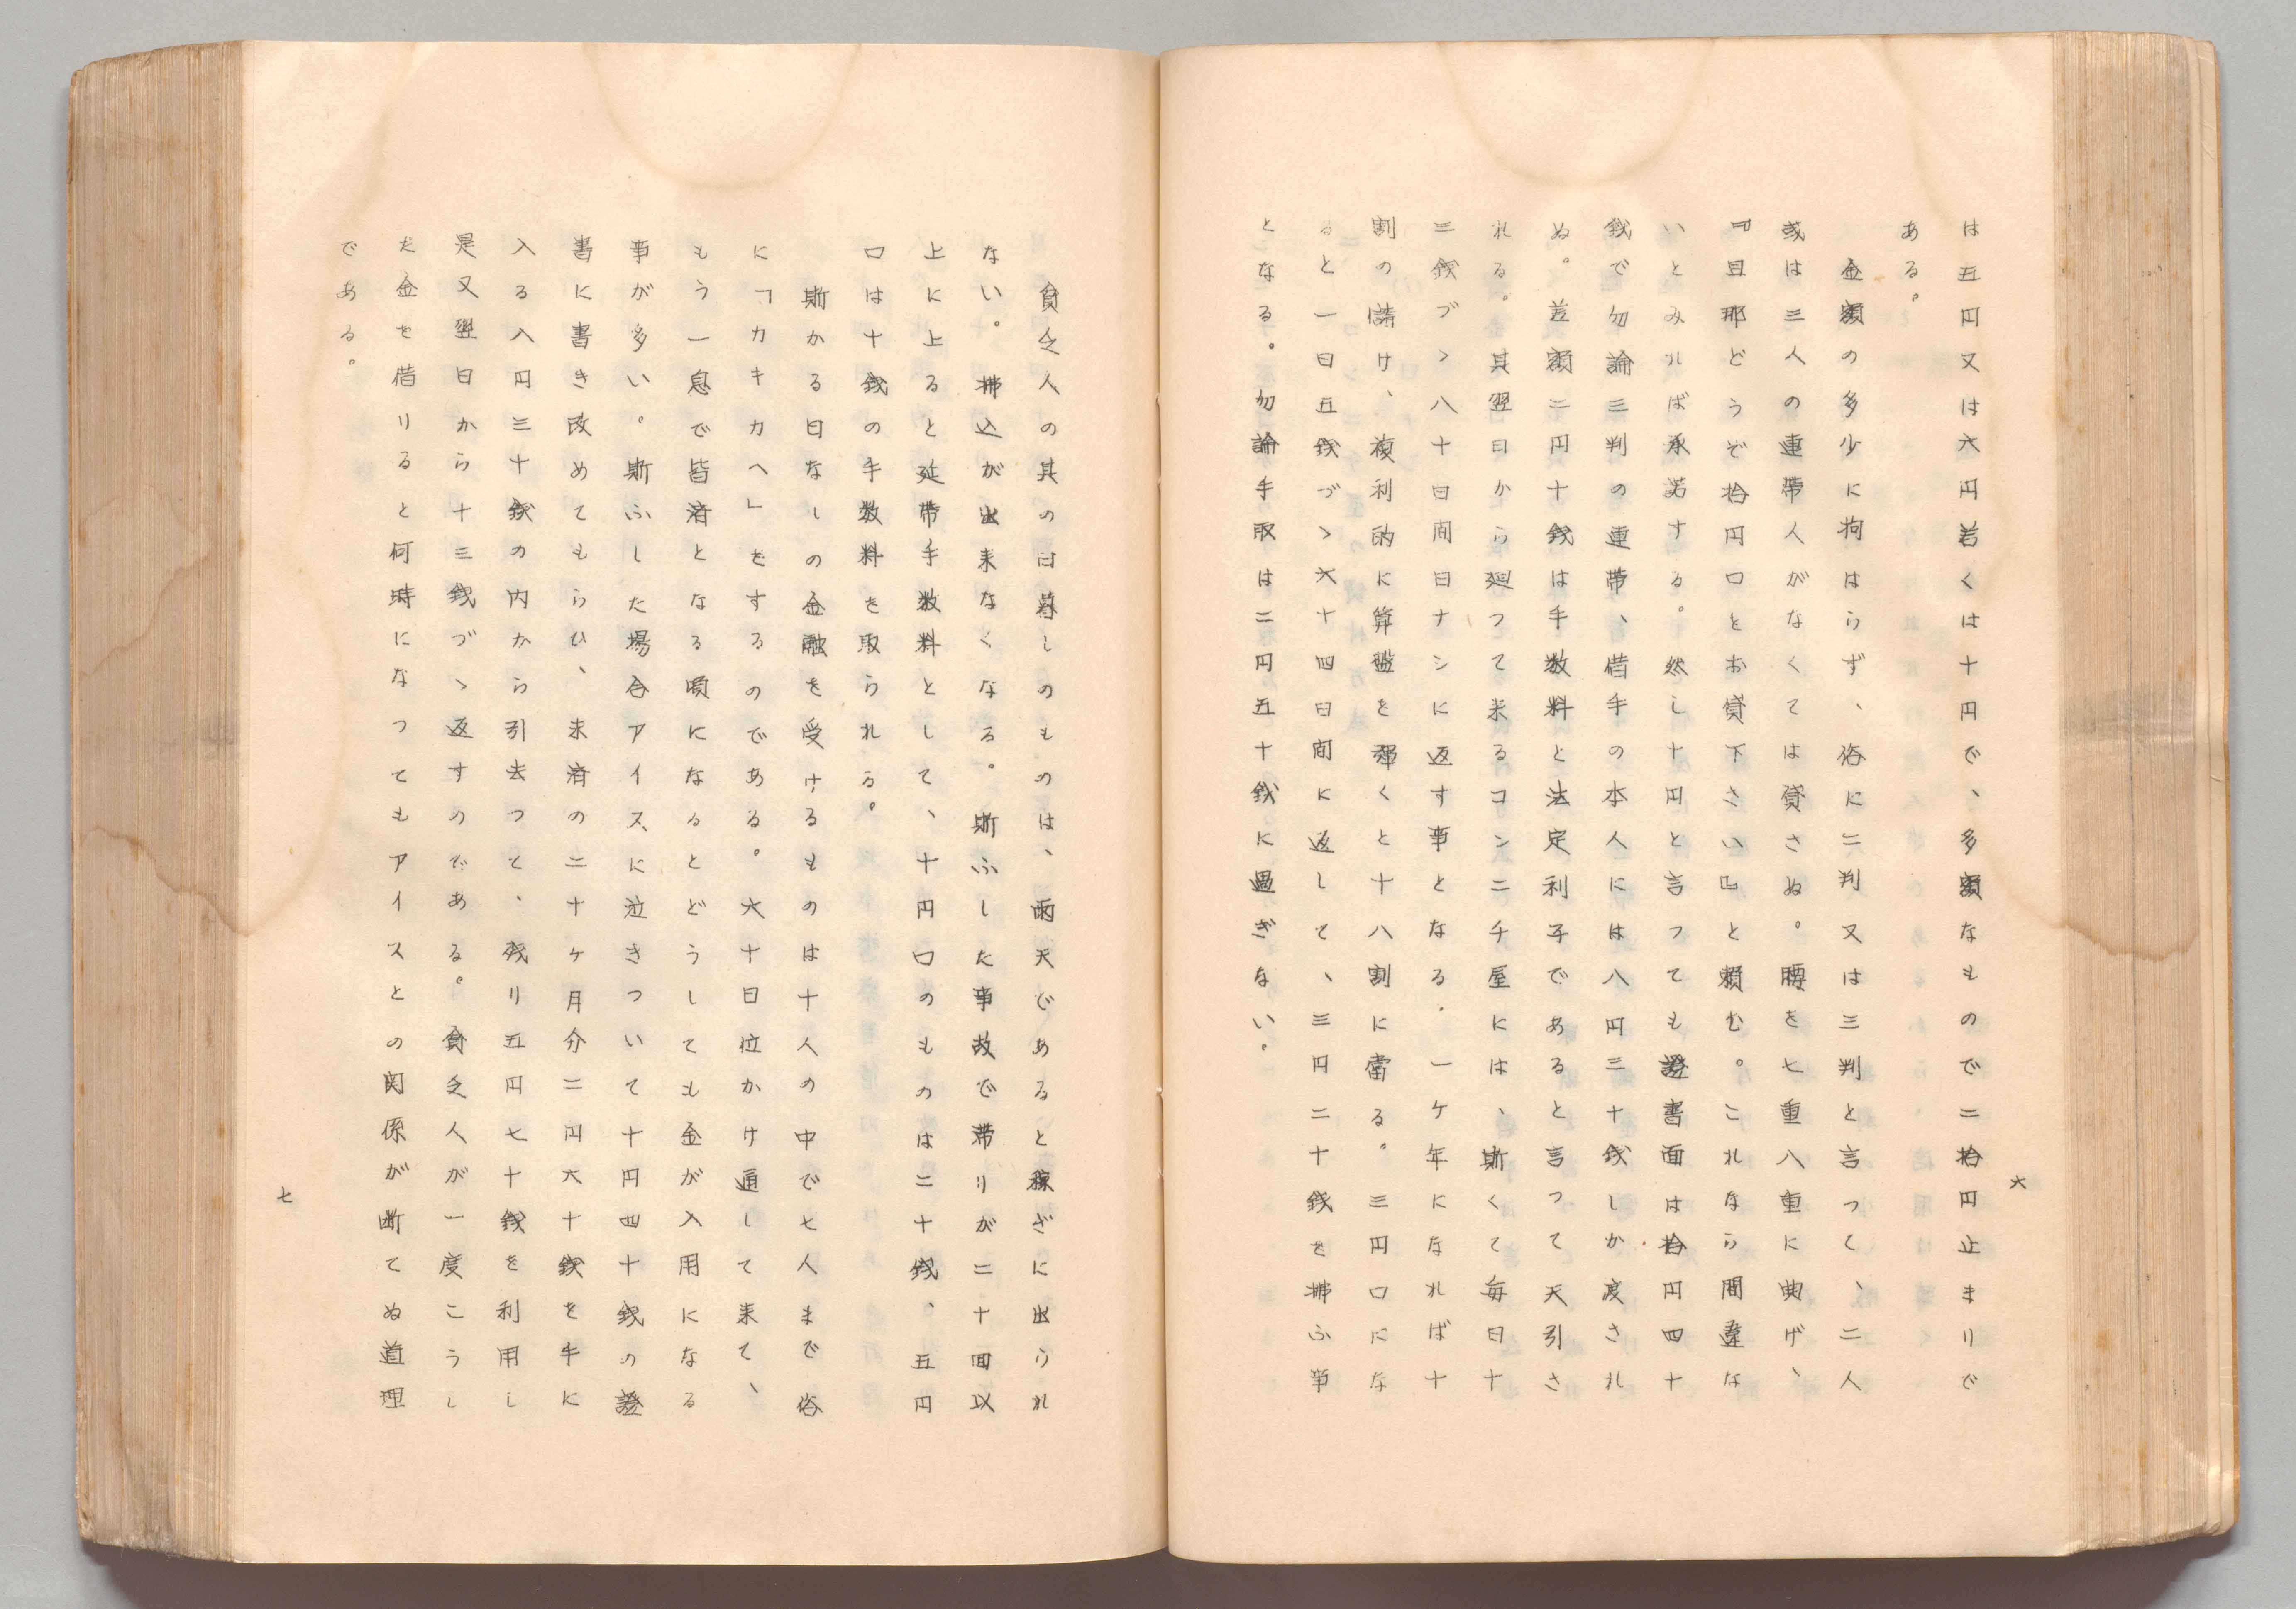 六
は五円又は六円若くは十円で、多額なもので二拾円止まりで
ある。
金額の多少に拘はらず、俗に二判又は三判と言つて、二人
或は三人の連帯人がなくては貸さぬ。腰を七重八重に曲げ、
『旦那どうぞ拾円口とお貸下さい』と頼む。これなら間違な
いとみれば承諾する。然し十円と言つても證書面は拾円四十
銭で勿論三判の連帯、借手の本人には八円三十銭しか渡され
ぬ。差額二円十銭は手数料と法定利子であると言つて天引さ
れる。其翌日から廻つて来るコンニチ屋には、斯くて毎日十
三銭づゝ八十日間日ナシに返す事となる。一ケ年になれば十
割の請け、複利的に算盤を弾くと十八割に當る。三円口にな
ると一日五銭づゝ六十四日間に返して、三円二十銭を拂ふ事
となる。勿論手取は二円五十銭に過ぎない。
貧乏人の其の日暮しのものは、雨天であると稼ぎに出られ
ない。拂込が出来なくなる。斯ふした事故で滞りが二十回以
上に上ると延帯手数料として、十円口のものは二十銭、五円
口は十銭の手数料を取られる。
斯かる日なしの金融を受けるものは十人の中で七人まで俗
に「カキカヘ」をするのである。六十日位かけ通して来て、
もう一息で皆済となる頃になるとどうしても金が入用になる
事が多い。斯ふした場合アイスに泣きついて十円四十銭の證
書に書き改めてもらひ、未済の二十ケ月分二円六十銭を手に
入る八円三十銭の内から引去つて、残り五円七十銭を利用し
是又翌日から十三銭づゝ返すのである。貧乏人が一度こうし
た金を借りると何時になつてもアイスとの関係が断てぬ道理
である。
七